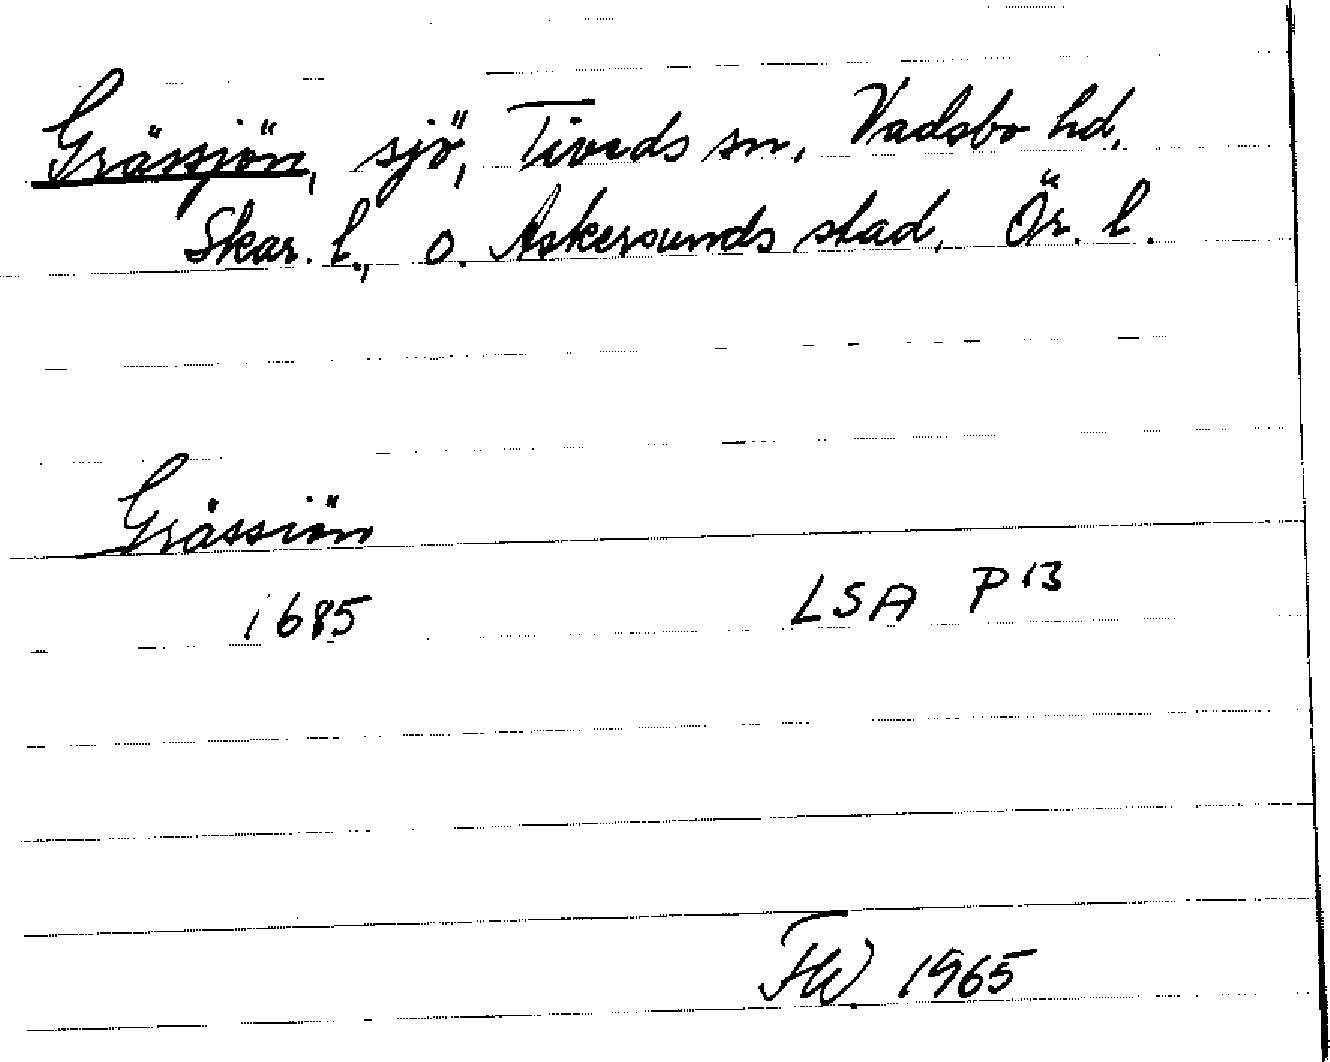 Grässjön, sjö, Tiveds sn, Vadsbo hd,
Skar. l., o. Askersunds stad, Ör. l.
Grässiön
1685 LSA P 13
FW. 1965